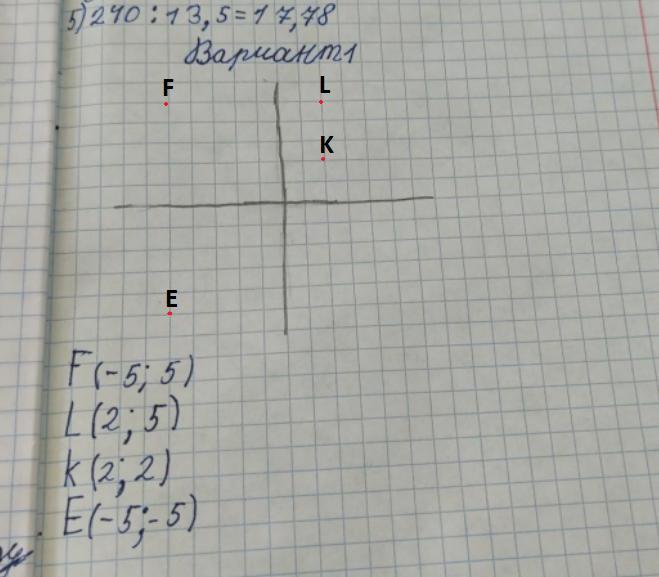 5) 240 : 13,5 = 17,78
Вариант 1
F
L
K
E
F(-5; 5)
L(2; 5)
K(2; 2)
E(-5; -5)